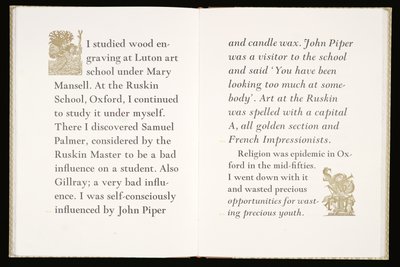 I studied wood en-
graving at Luton art
school under Mary
Mansell. At the Ruskin
School, Oxford, I continued
to study it under myself.
There I discovered Samuel
Palmer, considered by the
Ruskin Master to be a bad
influence on a student. Also
Gillray; a very bad influ-
ence. I was self-consciously
influenced by John Piper
and candle wax. John Piper
was a visitor to the school
and said ‘You have been
looking too much at some-
body’. Art at the Ruskin
was spelled with a capital
A, all golden section and
French Impressionists.
Religion was epidemic in Ox-
ford in the mid-fifties.
I went down with it
and wasted precious
opportunities for wast-
ing precious youth.